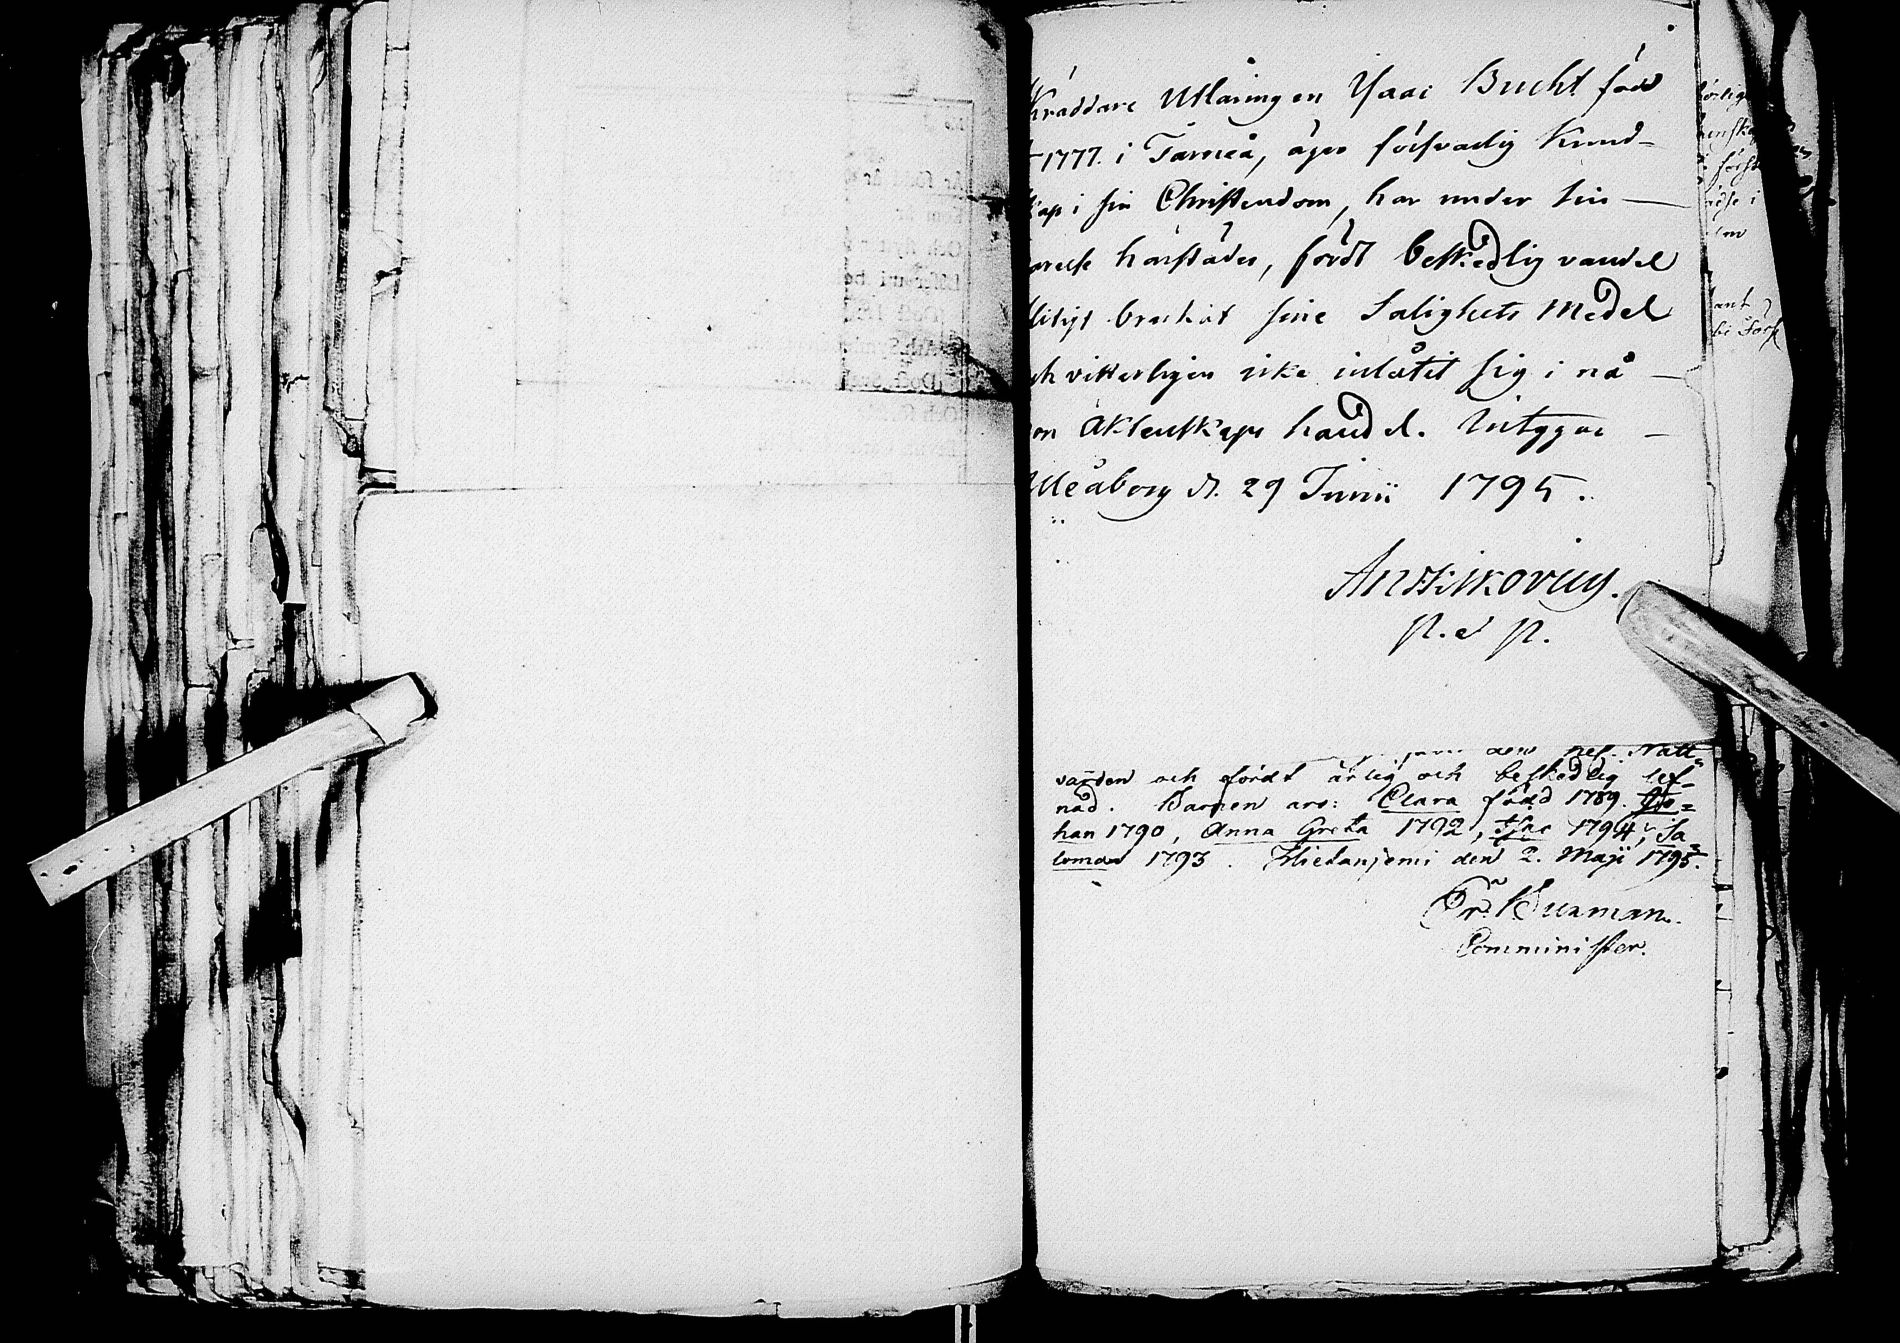 Skräddare Utlärningen Isaac Bucht född
1777. i Torneå, äger försvarlig Kund-
skap i sin Christendom, har under sin
härstädes, fördt beskedlig vandel
flitigt brukat sine Salighets Medel
och vitterligen icke inlåtit sig i nå
on Äktenskaps handel. Intygar
Uleåborg d. 29 Junii 1795.
p. et p.
den hel. Natt-
varden och fördt ärlig och beskedlig lef-
nad. Barnen äro: Clara född 1789. Jo-
han 1790, Anna Greta 1792, Isac 1794, Sa-
lomon 1793. Hietaniemi den 2. Maji 1795.
Comminister.